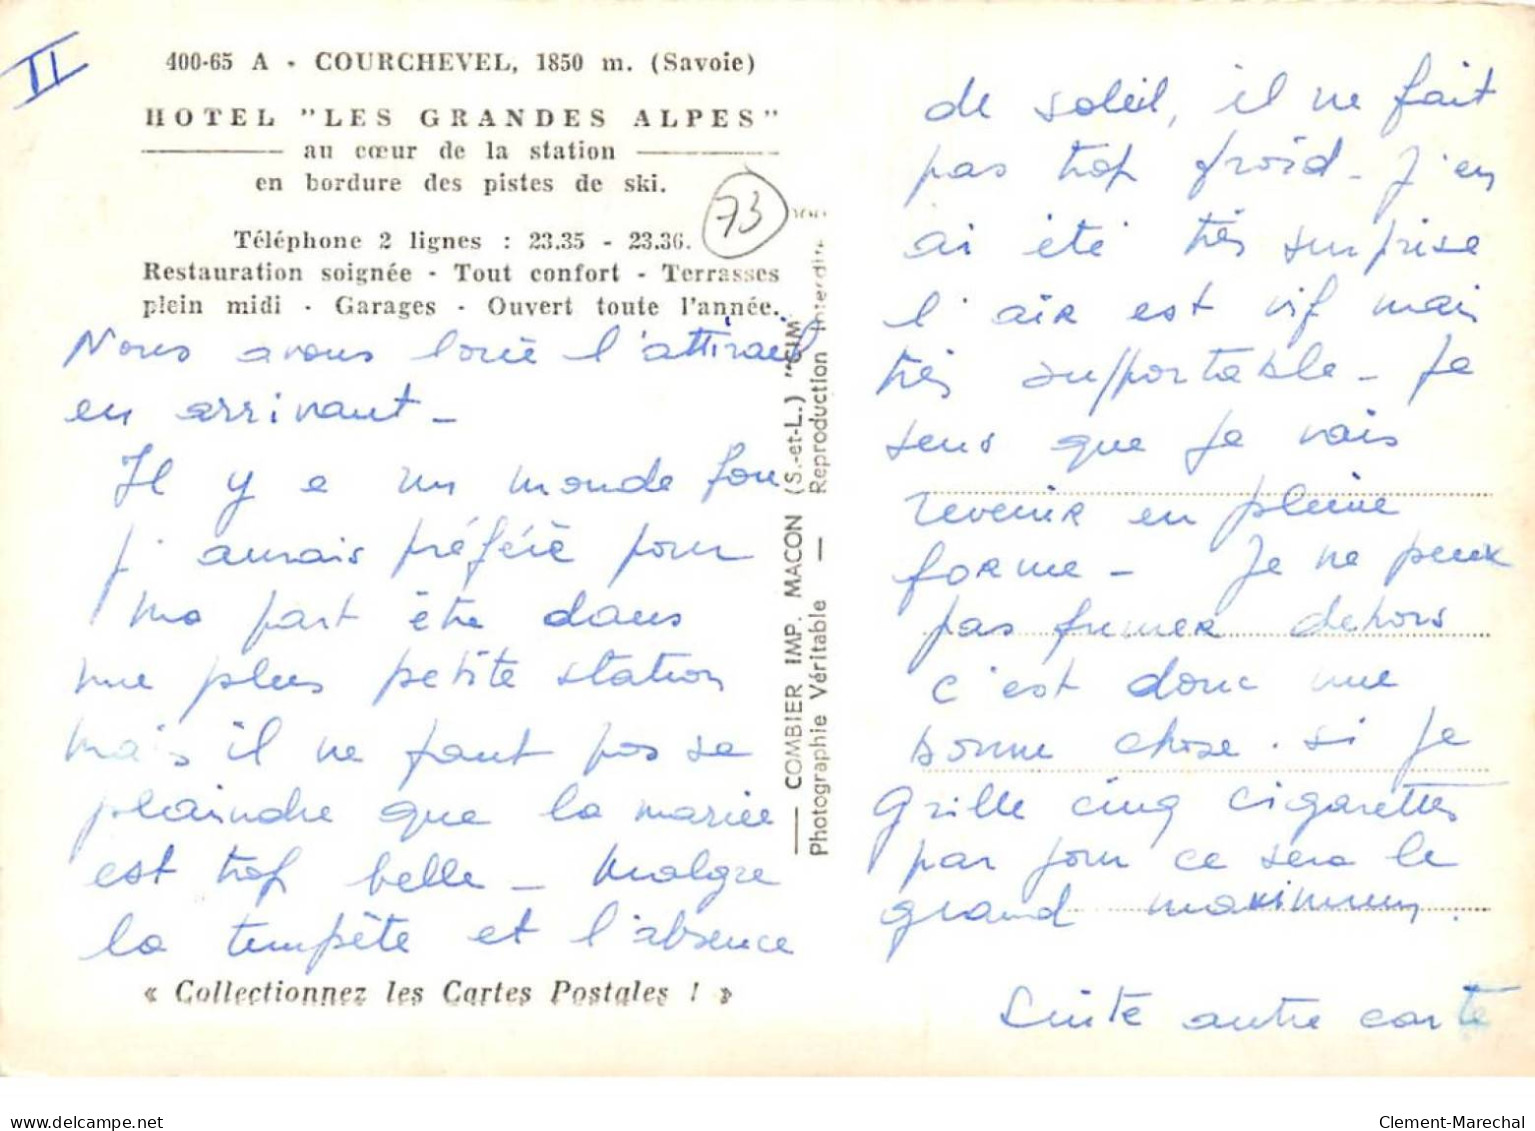 II
400-65 A - COURCHEVEL, 1850 m. (Savoie)
HOTEL "LES GRANDES ALPES"
au cœur de la station
en bordure des pistes de ski.
73
Téléphone 2 lignes : 23.35 - 23.36.
Restauration soignée - Tout confort - Terrasses
plein midi - Garages - Ouvert toute l'année.
Nous avons loué l'attirail
en arrivant -
Il y a un monde fou
j'aurais préféré pour
ma part être dans
une plus petite station
mais il ne faut pas se
plaindre que la mariée
est trop belle - Malgré
la tempête et l'absence
« Collectionnez les Cartes Postales ! »
COMBIER IMP. MACON (S.-et-L.) "CIM"
Photographie Véritable — Reproduction Interdite
de soleil, il ne fait
pas trop froid - J'en
ai été très surprise
l'air est vif mais
très supportable - Je
sens que je vais
revenir en pleine
forme - Je ne peux
pas fumer dehors
c'est donc une
bonne chose. si je
grille cinq cigarettes
par jour ce sera le
grand maximum.
Suite autre carte
Clement-Marechal
delcampe.net